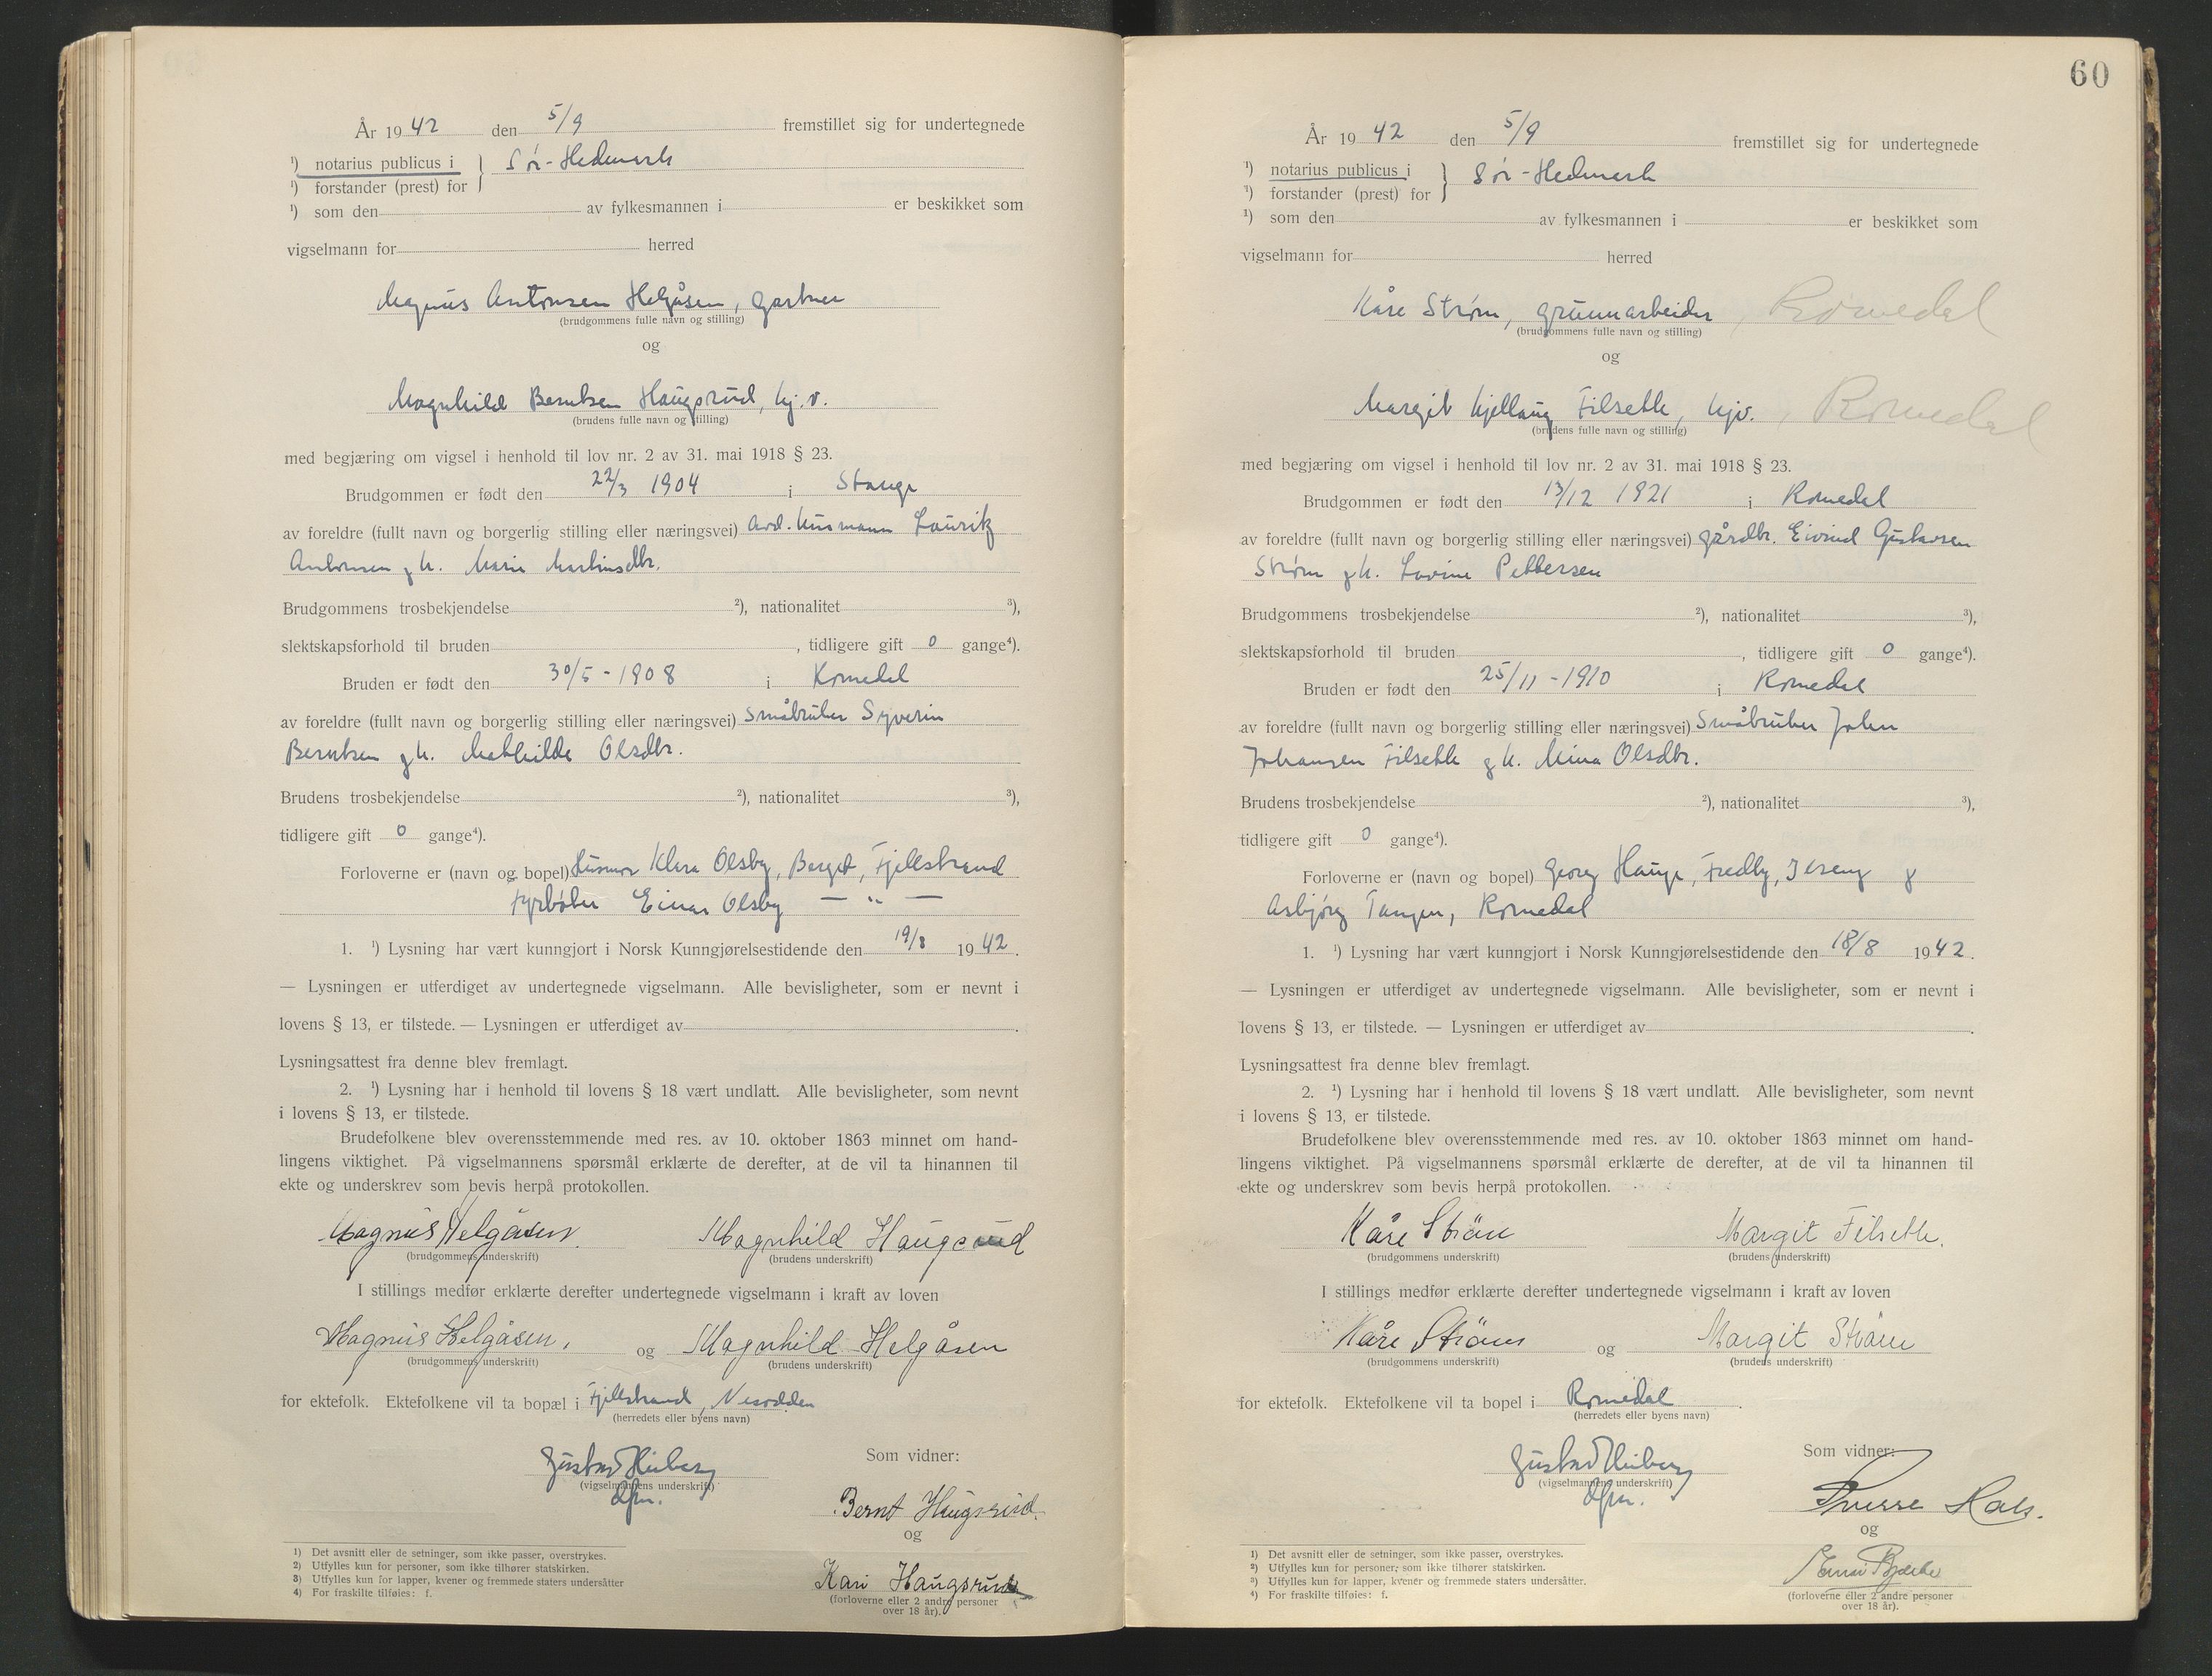 År 1942 den 5/9 fremstillet sig for undertegnede
¹) notarius publicus i } Sør-Hedmark
¹) forstander (prest) for
¹) som den av fylkesmannen i er beskikket som
vigselmann for herred
Magnus Antonsen Helgåsen, gartner
(brudgommens fulle navn og stilling)
og
Magnhild Berntsen Haugsrud, hj.v.
(brudens fulle navn og stilling)
med begjæring om vigsel i henhold til lov nr. 2 av 31. mai 1918 § 23.
Brudgommen er født den 22/3 1904 i Stange
av foreldre (fullt navn og borgerlig stilling eller næringsvei) husmann Lauritz
Antonsen g h. Marie Martinsdtr.
Brudgommens trosbekjendelse ²), nationalitet ³),
slektskapsforhold til bruden , tidligere gift 0 gange⁴).
Bruden er født den 30/5 - 1908 i Romedal
av foreldre (fullt navn og borgerlig stilling eller næringsvei) Småbruker Syverin
Berntsen g h. Mathilde Olsdtr.
Brudens trosbekjendelse ²), nationalitet ³),
tidligere gift 0 gange⁴).
Forloverne er (navn og bopel) Husmor Klara Olsby, Berget, Fjellstrand
Fyrbøter Einar Olsby — " —
1. ¹) Lysning har vært kunngjort i Norsk Kunngjørelsestidende den 19/8 1942.
— Lysningen er utferdiget av undertegnede vigselmann. Alle bevisligheter, som er nevnt i
lovens § 13, er tilstede. — Lysningen er utferdiget av .
Lysningsattest fra denne blev fremlagt.
2. ¹) Lysning har i henhold til lovens § 18 vært undlatt. Alle bevisligheter, som nevnt
i lovens § 13, er tilstede.
Brudefolkene blev overensstemmende med res. av 10. oktober 1863 minnet om hand-
lingens viktighet. På vigselmannens spørsmål erklærte de derefter, at de vil ta hinannen til
ekte og underskrev som bevis herpå protokollen.
Magnus Helgåsen Magnhild Haugsrud
(brudgommens underskrift) (brudens underskrift)
I stillings medfør erklærte derefter undertegnede vigselmann i kraft av loven
Magnus Helgåsen. og Magnhild Helgåsen
(brudgommens underskrift) (brudens underskrift)
for ektefolk. Ektefolkene vil ta bopæl i Fjellstrand, Nesodden
(herredets eller byens navn)
Gustav Heiberg Som vidner:
(vigselmannens underskrift)
dfm.
Bernt Haugsrud.
og
Kari Haugsrud
(forloverne eller 2 andre personer
over 18 år).
1) Det avsnitt eller de setninger, som ikke passer, overstrykes.
2) Utfylles kun for personer, som ikke tilhører statskirken.
3) Utfylles kun for lapper, kvener og fremmede staters undersåtter
4) For fraskilte tilføies: f.
60
År 1942 den 5/9 fremstillet sig for undertegnede
¹) notarius publicus i } Sør-Hedmark
¹) forstander (prest) for
¹) som den av fylkesmannen i er beskikket som
vigselmann for herred
Kåre Strøm, grunnarbeider, Romedal
(brudgommens fulle navn og stilling)
og
Margit Kjellaug Filseth, hjv., Romedal
(brudens fulle navn og stilling)
med begjæring om vigsel i henhold til lov nr. 2 av 31. mai 1918 § 23.
Brudgommen er født den 13/12 1921 i Romedal
av foreldre (fullt navn og borgerlig stilling eller næringsvei) gårdbr. Eivind Gustavsen
Strøm g h. Lovine Pettersen
Brudgommens trosbekjendelse ²), nationalitet ³),
slektskapsforhold til bruden , tidligere gift 0 gange⁴).
Bruden er født den 25/11 - 1910 i Romedal
av foreldre (fullt navn og borgerlig stilling eller næringsvei) Småbruker Johan
Johansen Filseth g h. Mina Olsdtr.
Brudens trosbekjendelse ²), nationalitet ³),
tidligere gift 0 gange⁴).
Forloverne er (navn og bopel) Georg Hauge, Fredly, Ilseng g
Asbjørg Tangen, Romedal
1. ¹) Lysning har vært kunngjort i Norsk Kunngjørelsestidende den 18/8 1942.
— Lysningen er utferdiget av undertegnede vigselmann. Alle bevisligheter, som er nevnt i
lovens § 13, er tilstede. — Lysningen er utferdiget av .
Lysningsattest fra denne blev fremlagt.
2. ¹) Lysning har i henhold til lovens § 18 vært undlatt. Alle bevisligheter, som nevnt
i lovens § 13, er tilstede.
Brudefolkene blev overensstemmende med res. av 10. oktober 1863 minnet om hand-
lingens viktighet. På vigselmannens spørsmål erklærte de derefter, at de vil ta hinannen til
ekte og underskrev som bevis herpå protokollen.
Kåre Ström Margit Filseth.
(brudgommens underskrift) (brudens underskrift)
I stillings medfør erklærte derefter undertegnede vigselmann i kraft av loven
Kåre Ström og Margit Ström
(brudgommens underskrift) (brudens underskrift)
for ektefolk. Ektefolkene vil ta bopel i Romedal.
(herredets eller byens navn)
Gustav Heiberg Som vidner:
(vigselmannens underskrift)
dfm.
Sverre Hals.
og
(forloverne eller 2 andre personer
over 18 år).
1) Det avsnitt eller de setninger, som ikke passer, overstrykes.
2) Utfylles kun for personer, som ikke tilhører statskirken.
3) Utfylles kun for lapper, kvener og fremmede staters undersåtter.
4) For fraskilte tilføies: f.